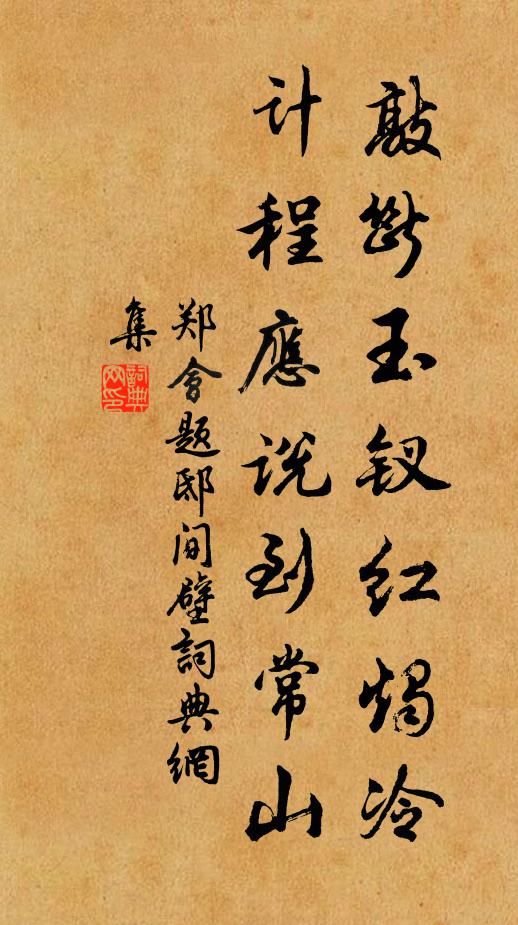 敲断玉钗红烛冷
计程應说到常山
郑會题邸间壁詞典網
集
詞典
网印